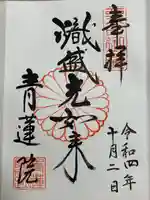 奉拝
熾盛光如来
青蓮院
令和四年
十月二日